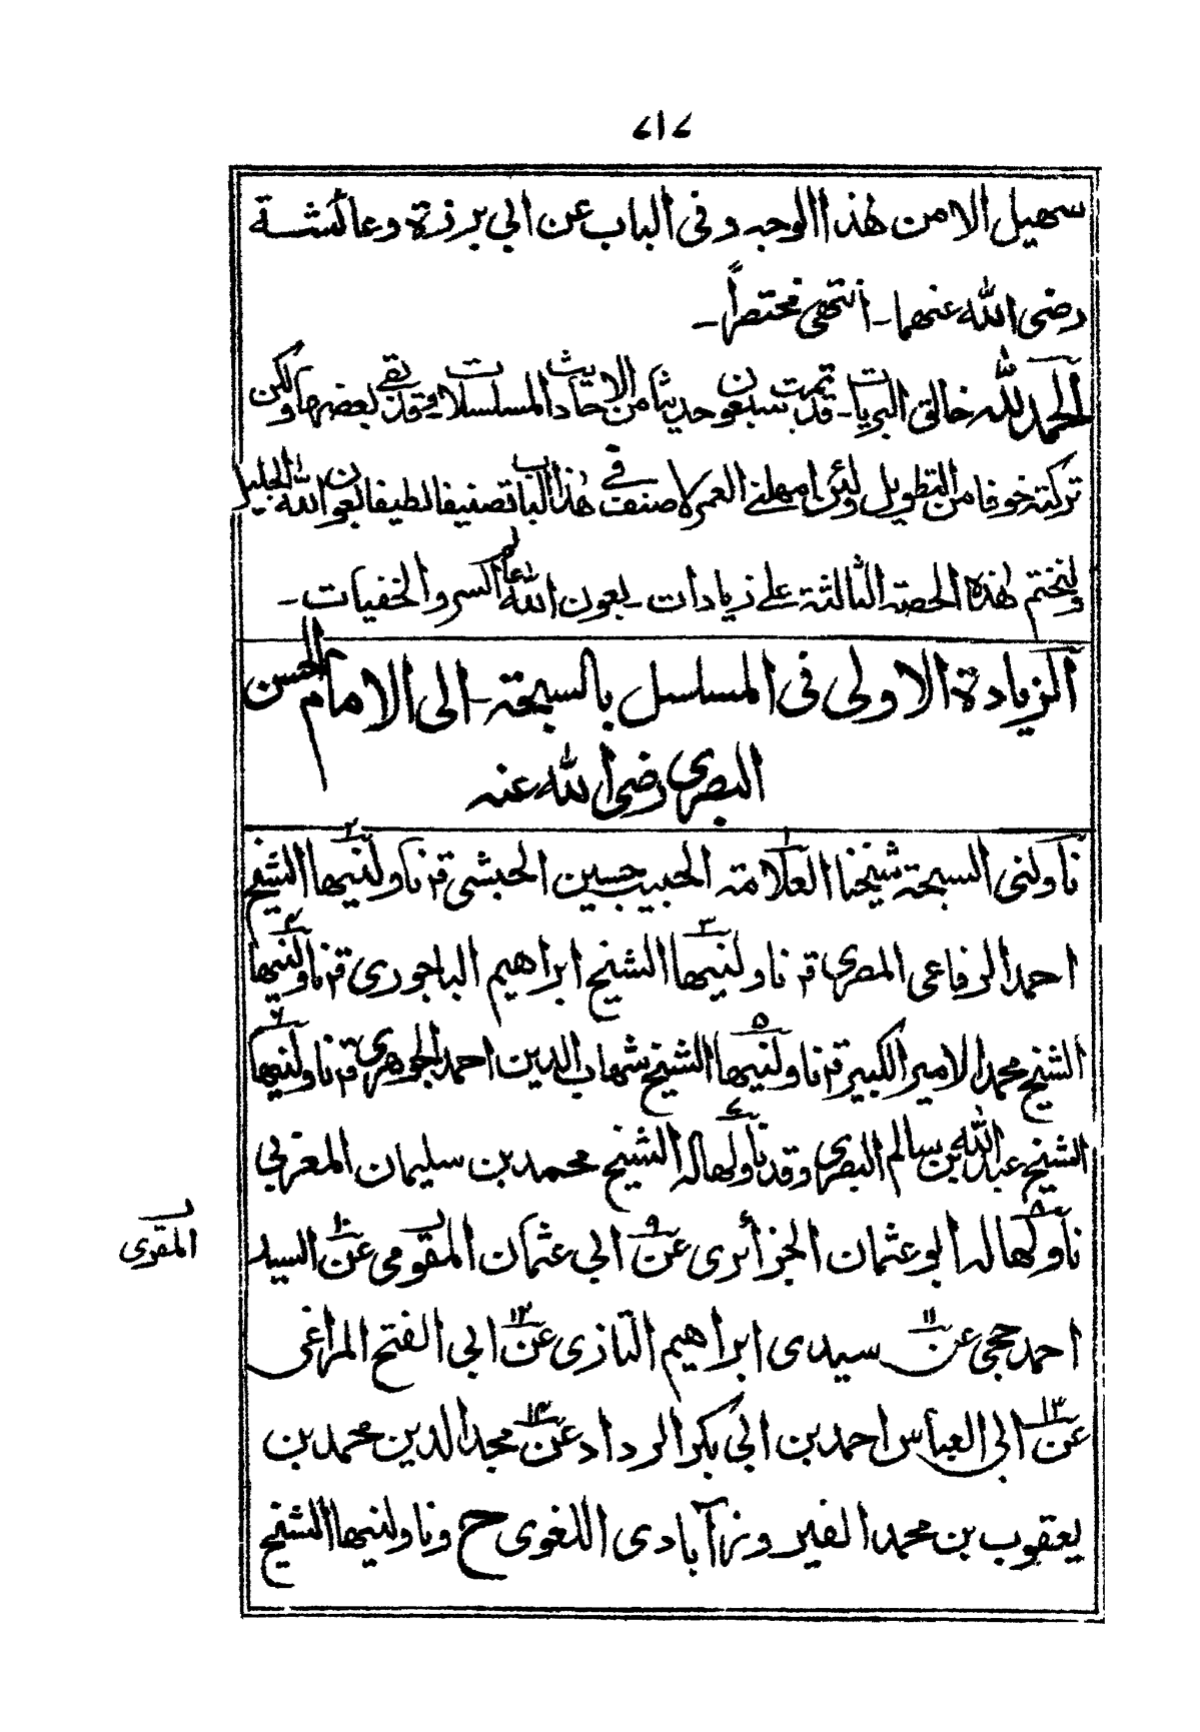 ٢١٧
سهيل الا من هذا الوجه وفى الباب عن ابي برزة وعائشة
رضى الله عنهما۔ انتهى مختصراً۔
الحمد لله خالق البريات۔ قد تمت سبعون حديثا من الاحاديث المسلسلات وقد بقى بعضها ولكن
تركته خوفا من التطويل ولئن امهلنى العمر لاصنفت فى هذا الباب تصنيفا لطيفا بعون الله الجليل
ونختم هذه الحصة الثالثة على زيادات۔ بعون الله عالم السر والخفيات۔
الزيادة الاولى فى المسلسل بالسبحة۔ الى الامام الحسن
البصرى رضى الله عنه
ناولنى السبحة شيخنا ١ العلامة الحبيب حسين الحبشى قد ناولنيها ٢ الشيخ
احمد الرفاعى المصرى قد ناولنيها ٣ الشيخ ابراهيم الباجورى قد ناولنيها ٤
الشيخ محمد الامير الكبير قد ناولنيها ٥ الشيخ شهاب الدين احمد الجوهرى قد ناولنيها ٦
الشيخ عبد الله بن سالم البصرى وقد ناولها له ٧ الشيخ محمد بن سليمان المغربي
ناولها له ٨ ابو عثمان الجزائرى عن ٩ ابي عثمان المقومى عن ١٠ السيد
المقرى
احمد حجى عن ١١ سيدى ابراهيم التازى عن ١٢ ابي الفتح المراغى
عن ١٣ ابي العباس احمد بن ابي بكر الرداد عن ١٤ مجد الدين محمد بن
يعقوب بن محمد الفيروزآبادى اللغوى ح وناولنيها الشيخ